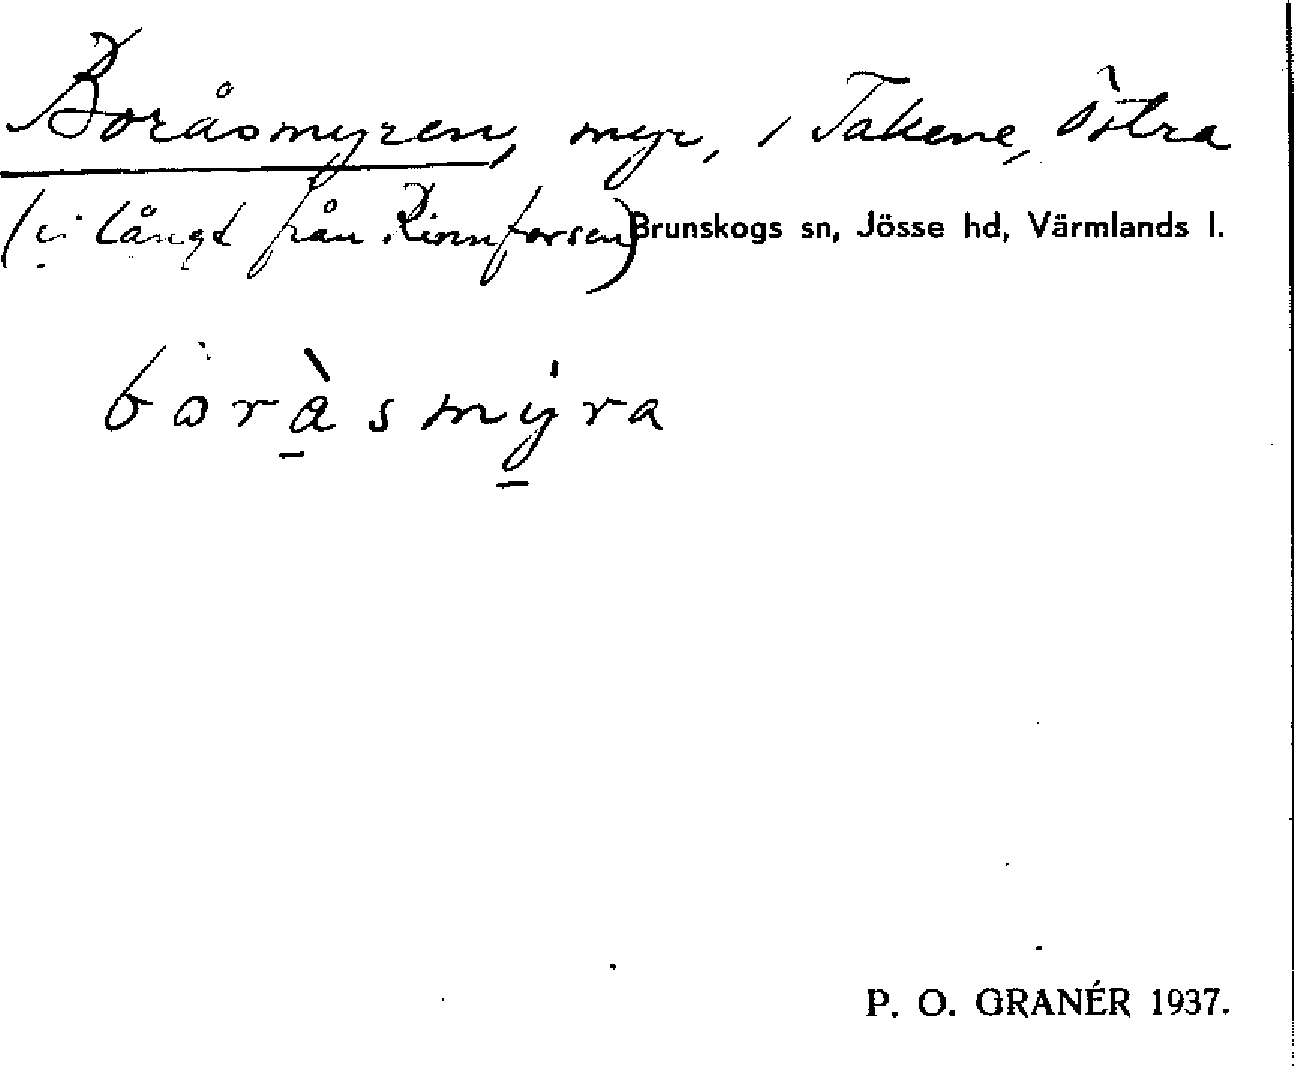 Boråsmyren, myr, i Takene, Östra
(ej långt från Rinnforsen) Brunskogs sn, Jösse hd, Värmlands l.
boràsmýra
P. O. GRANÉR 1937.